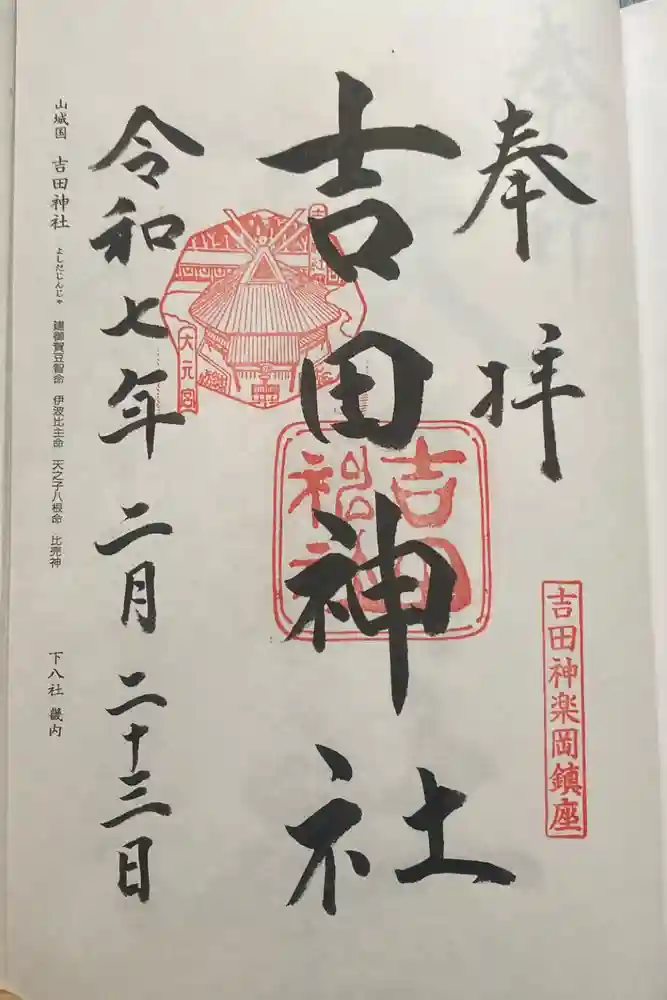 奉拝
吉田神楽岡鎮座
吉田神社
吉田
大元宮
令和七年二月二十三日
山城国 吉田神社 よしだじんじゃ 建御賀豆智命 伊波比主命 天之子八根命 比売神 下八社 畿内